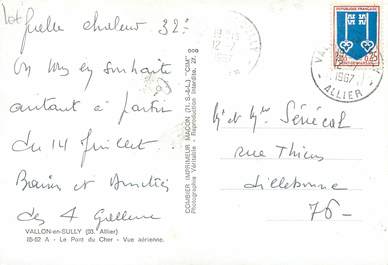 quelle chaleur 32°
On vous en souhaite
autant à partir
du 14 Juillet.
Baisers et Amitiés
des 4
VALLON-en-SULLY (03. Allier)
18-62 A - Le Pont du Cher - Vue aérienne.
COMBIER IMPRIMEUR MACON (71. S.-&-L.) "CIM"
Photographie Véritable - Reproduction Interdite.
RÉPUBLIQUE FRANÇAISE
0,25
12-7
1967
ALLIER
12
1967
ALLIER
M et Mme Sénécal
rue Thiers
Lillebonne
76-